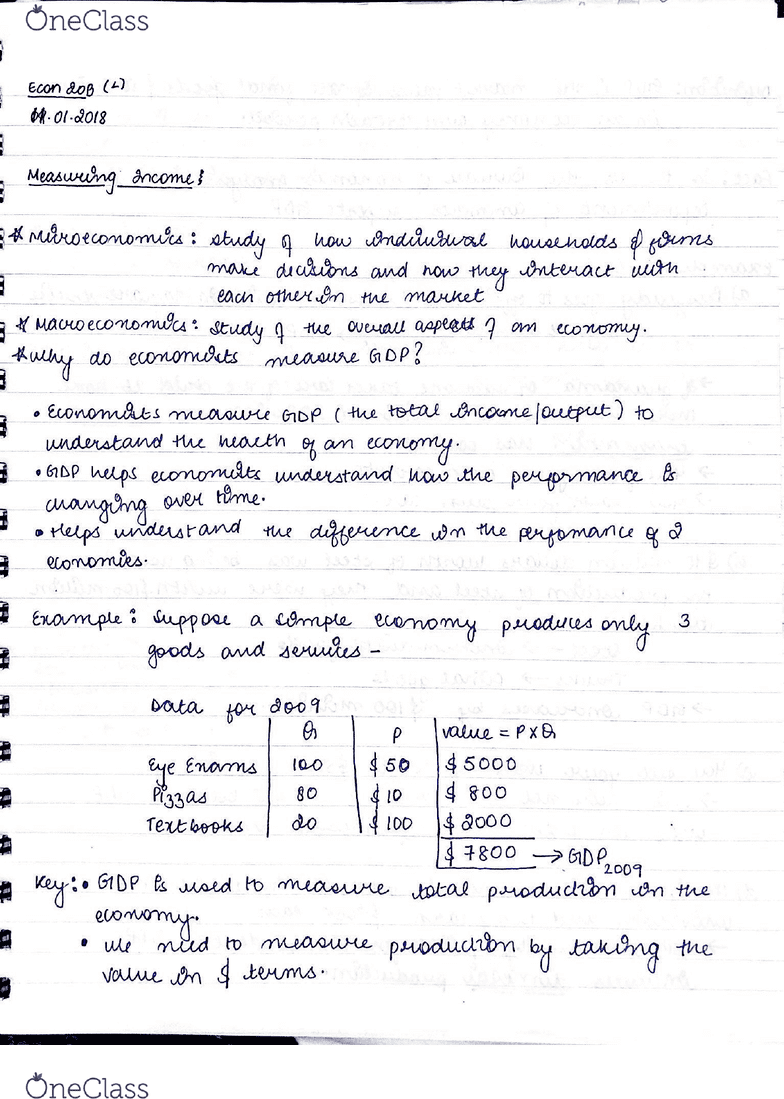 OneClass
Econ 20B (L)
01.01.2018
Measuring Income:
* Microeconomics: study of how individual households & firms
make decisions and how they interact with
each other in the market
* Macroeconomics: study of the overall aspects of an economy.
* Why do economists measure GDP?
• Economists measure GDP (the total income/output) to
understand the health of an economy.
• GDP helps economists understand how the performance is
changing over time.
• Helps understand the difference in the perfomance of 2
economies.
Example: Suppose a simple economy produces only 3
goods and services -
Data for 2009
Q P value = P x Q
Eye Exams 100 $50 $5000
Pizzas 80 $10 $800
Textbooks 20 $100 $2000
$7800 → GDP2009
Key: • GDP is used to measure total production in the
economy.
• we need to measure production by taking the
value in $ terms.
OneClass